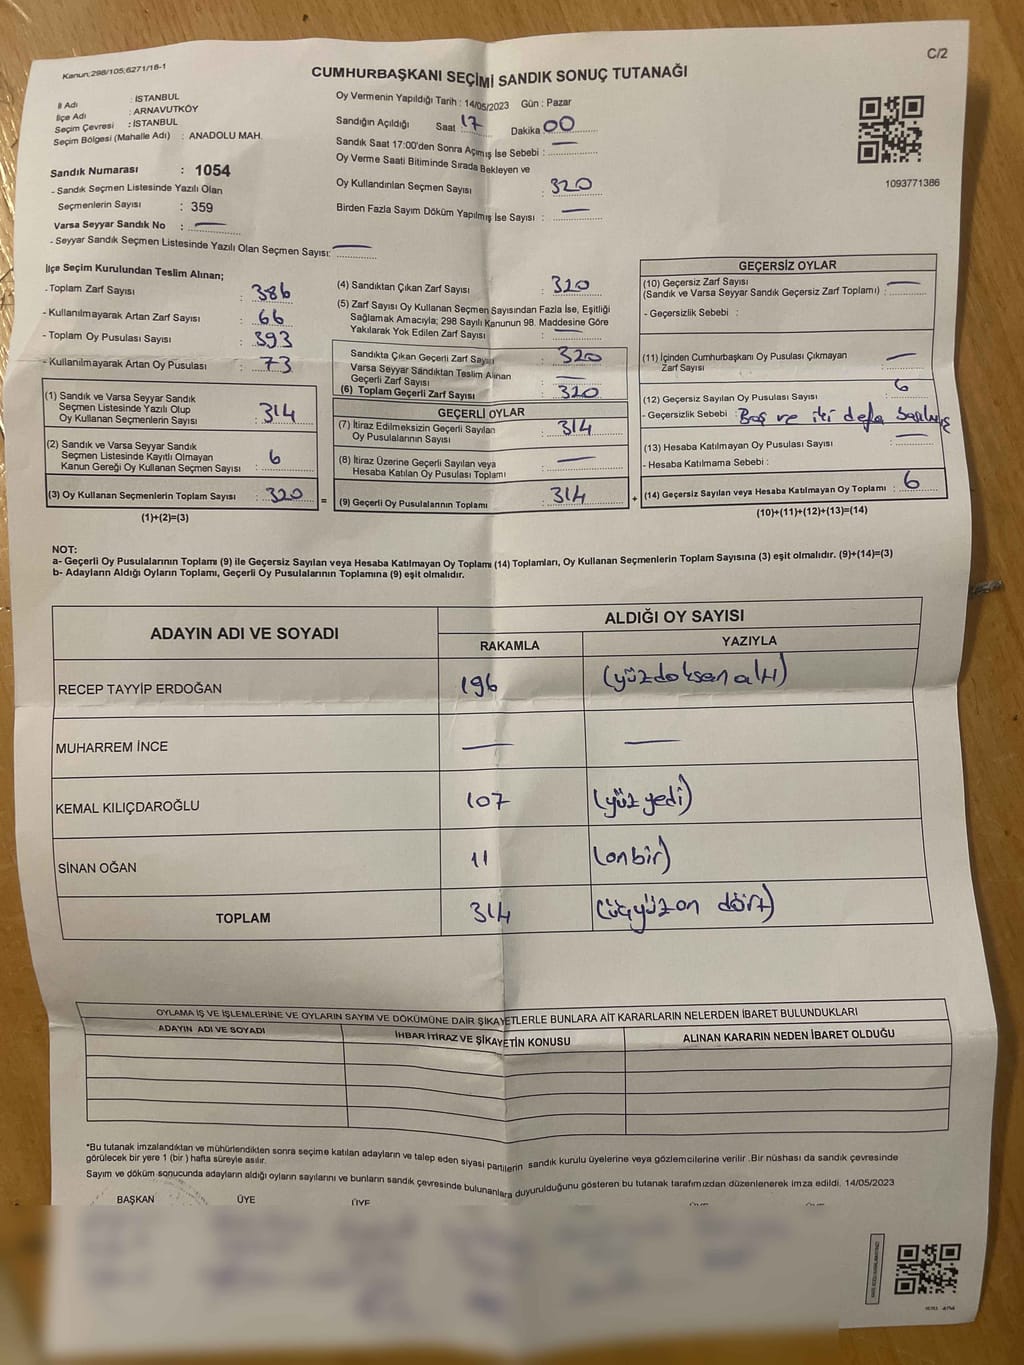 Kanun;298/105;6271/16-1
C/2
CUMHURBAŞKANI SEÇİMİ SANDIK SONUÇ TUTANAĞI
İl Adı : İSTANBUL
İlçe Adı : ARNAVUTKÖY
Seçim Çevresi : İSTANBUL
Seçim Bölgesi (Mahalle Adı) : ANADOLU MAH.
Sandık Numarası : 1054
- Sandık Seçmen Listesinde Yazılı Olan
Seçmenlerin Sayısı : 359
Varsa Seyyar Sandık No : —
- Seyyar Sandık Seçmen Listesinde Yazılı Olan Seçmen Sayısı: —
Oy Vermenin Yapıldığı Tarih : 14/05/2023 Gün : Pazar
Sandığın Açıldığı Saat 17 Dakika 00
Sandık Saat 17:00'den Sonra Açılmış İse Sebebi : —
Oy Verme Saati Bitiminde Sırada Bekleyen ve
Oy Kullandırılan Seçmen Sayısı : 320
Birden Fazla Sayım Döküm Yapılmış İse Sayısı : —
1093771386
İlçe Seçim Kurulundan Teslim Alınan;
- Toplam Zarf Sayısı : 386
- Kullanılmayarak Artan Zarf Sayısı : 66
- Toplam Oy Pusulası Sayısı : 393
- Kullanılmayarak Artan Oy Pusulası : 73
(1) Sandık ve Varsa Seyyar Sandık
Seçmen Listesinde Yazılı Olup
Oy Kullanan Seçmenlerin Sayısı : 314
(2) Sandık ve Varsa Seyyar Sandık
Seçmen Listesinde Kayıtlı Olmayan
Kanun Gereği Oy Kullanan Seçmen Sayısı : 6
(3) Oy Kullanan Seçmenlerin Toplam Sayısı : 320
(1)+(2)=(3)
=
(4) Sandıktan Çıkan Zarf Sayısı : 320
(5) Zarf Sayısı Oy Kullanan Seçmen Sayısından Fazla İse, Eşitliği
Sağlamak Amacıyla; 298 Sayılı Kanunun 98. Maddesine Göre
Yakılarak Yok Edilen Zarf Sayısı : —
Sandıkta Çıkan Geçerli Zarf Sayısı : 320
Varsa Seyyar Sandıktan Teslim Alınan
Geçerli Zarf Sayısı : —
(6) Toplam Geçerli Zarf Sayısı : 320
GEÇERLİ OYLAR
(7) İtiraz Edilmeksizin Geçerli Sayılan
Oy Pusulalarının Sayısı : 314
(8) İtiraz Üzerine Geçerli Sayılan veya
Hesaba Katılan Oy Pusulası Toplamı : —
(9) Geçerli Oy Pusulalarının Toplamı : 314
+
GEÇERSİZ OYLAR
(10) Geçersiz Zarf Sayısı
(Sandık ve Varsa Seyyar Sandık Geçersiz Zarf Toplamı) : —
- Geçersizlik Sebebi :
(11) İçinden Cumhurbaşkanı Oy Pusulası Çıkmayan
Zarf Sayısı : —
(12) Geçersiz Sayılan Oy Pusulası Sayısı : 6
- Geçersizlik Sebebi : Boş ve iki defa
(13) Hesaba Katılmayan Oy Pusulası Sayısı : —
- Hesaba Katılmama Sebebi :
(14) Geçersiz Sayılan veya Hesaba Katılmayan Oy Toplamı : 6
(10)+(11)+(12)+(13)=(14)
NOT:
a- Geçerli Oy Pusulalarının Toplamı (9) ile Geçersiz Sayılan veya Hesaba Katılmayan Oy Toplamı (14) Toplamları, Oy Kullanan Seçmenlerin Toplam Sayısına (3) eşit olmalıdır. (9)+(14)=(3)
b- Adayların Aldığı Oyların Toplamı, Geçerli Oy Pusulalarının Toplamına (9) eşit olmalıdır.
ADAYIN ADI VE SOYADI
ALDIĞI OY SAYISI
RAKAMLA YAZIYLA
RECEP TAYYİP ERDOĞAN 196 (yüzdoksanaltı)
MUHARREM İNCE — —
KEMAL KILIÇDAROĞLU 107 (yüzyedi)
SİNAN OĞAN 11 (onbir)
TOPLAM 314 (üçyüzon dört)
OYLAMA İŞ VE İŞLEMLERİNE VE OYLARIN SAYIM VE DÖKÜMÜNE DAİR ŞİKAYETLERLE BUNLARA AİT KARARLARIN NELERDEN İBARET BULUNDUKLARI
ADAYIN ADI VE SOYADI İHBAR İTİRAZ VE ŞİKAYETİN KONUSU ALINAN KARARIN NEDEN İBARET OLDUĞU
*Bu tutanak imzalandıktan ve mühürlendikten sonra seçime katılan adayların ve talep eden siyasi partilerin sandık kurulu üyelerine veya gözlemcilerine verilir .Bir nüshası da sandık çevresinde
görülecek bir yere 1 (bir ) hafta süreyle asılır.
Sayım ve döküm sonucunda adayların aldığı oyların sayılarını ve bunların sandık çevresinde bulunanlara duyurulduğunu gösteren bu tutanak tarafımızdan düzenlenerek imza edildi. 14/05/2023
BAŞKAN ÜYE ÜYE